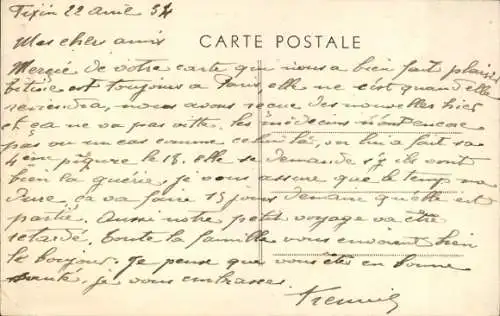 Fixin 22 avril 54
Mes chers amis
CARTE POSTALE
Merçie de votre carte qui nous a bien fait plaisir
est toujours a Paris, elle ne c'est quand elle
reviendra, nous avons recue des nouvelles hier
et ça ne va pas vitte. les médecins encore
pas vu un cas comme celui la, on lui a fait sa
4eme piqure le 18. elle se demande s'y ils vont
bien la guérie, je vous assure que le temp me
dure, ça va faire 15 jours demain qu'elle est
partie. Aussi notre petit voyage va être
retardé. toute la famille vous envoient bien
le bonjour. Je pense que vous êtes en bonne
santé, je vous embrasses.